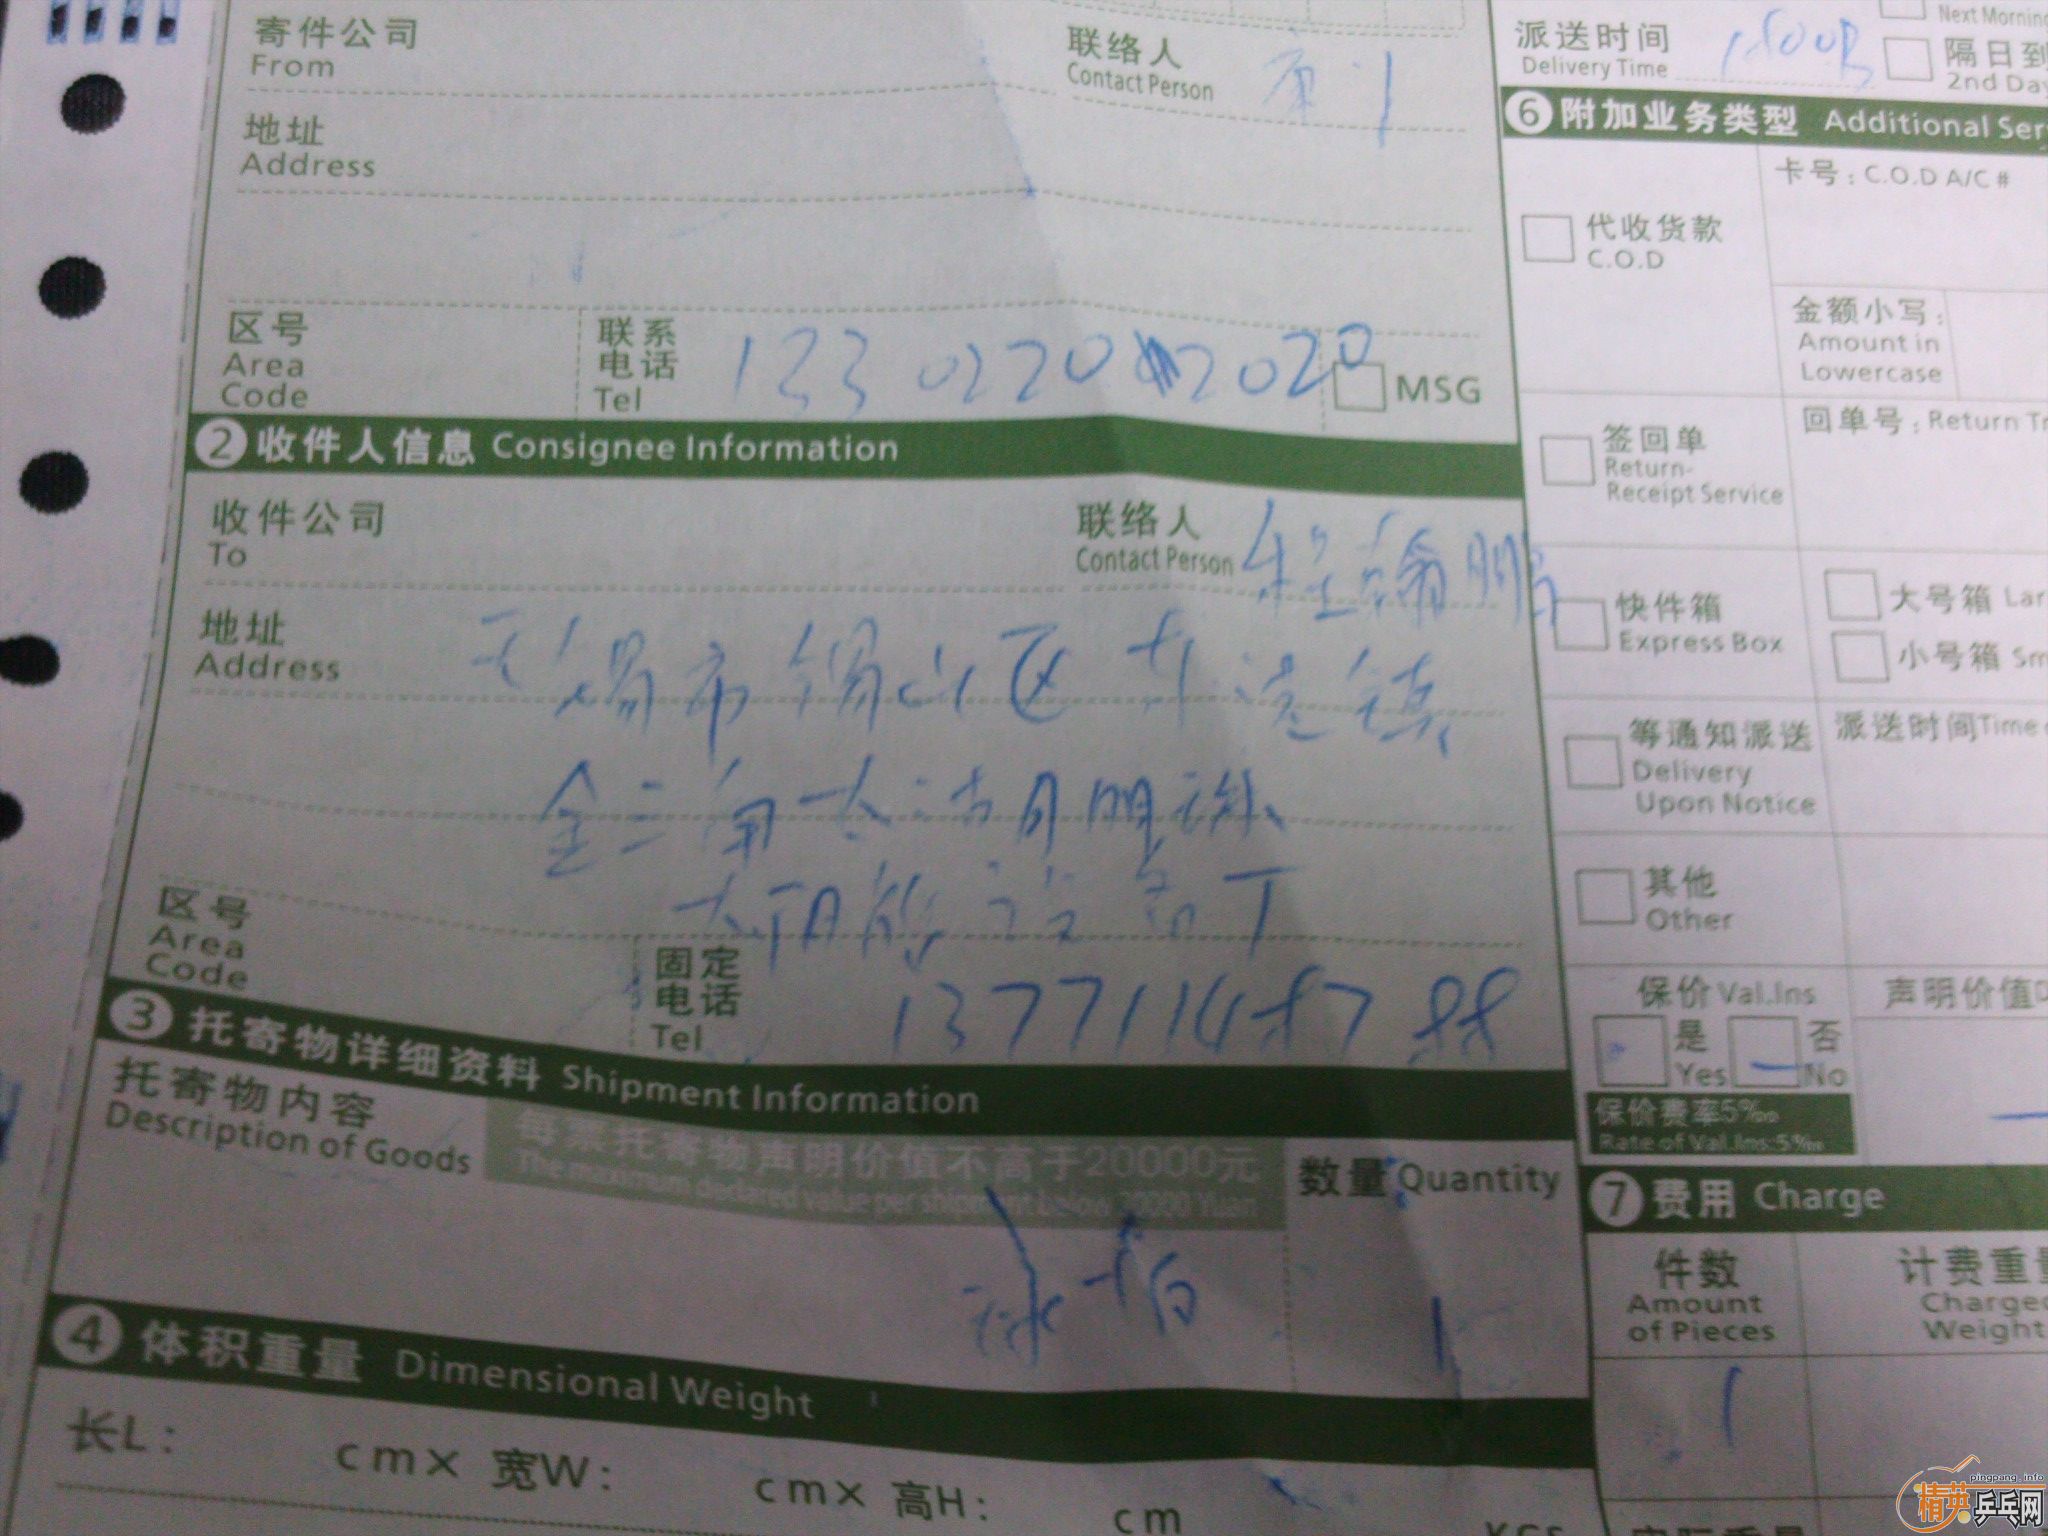 寄件公司
From
联络人
Contact Person
地址
Address
区号
Area
Code
联系
电话
Tel
MSG
2 收件人信息 Consignee Information
收件公司
To
联络人
Contact Person
程翰鹏
地址
Address
无锡市锡山区
镇
金三角太湖明珠
太阳能
区号
Area
Code
固定
电话
Tel
13771148788
3 托寄物详细资料 Shipment Information
托寄物内容
Description of Goods
每票托寄物声明价值不高于20000元
The maximum declared value per shipment below 20000 Yuan
数量 Quantity
球拍
1
4 体积重量 Dimensional Weight
长L:
cm× 宽W:
cm× 高H:
cm
KGS
派送时间
Delivery Time
Next Morning
隔日到
2nd Day
6 附加业务类型 Additional Ser
代收货款
C.O.D
卡号: C.O.D A/C #
金额小写:
Amount in
Lowercase
签回单
Return-
Receipt Service
回单号: Return Tr
快件箱
Express Box
大号箱 Lar
小号箱 Sm
等通知派送
Delivery
Upon Notice
派送时间 Time
其他
Other
保价 Val.Ins
是
Yes
否
No
声明价值
保价费率5‰
Rate of Val.Ins:5‰
7 费用 Charge
件数
Amount
of Pieces
计费重量
Charged
Weight
1
pingpang.info
精英乒乓网